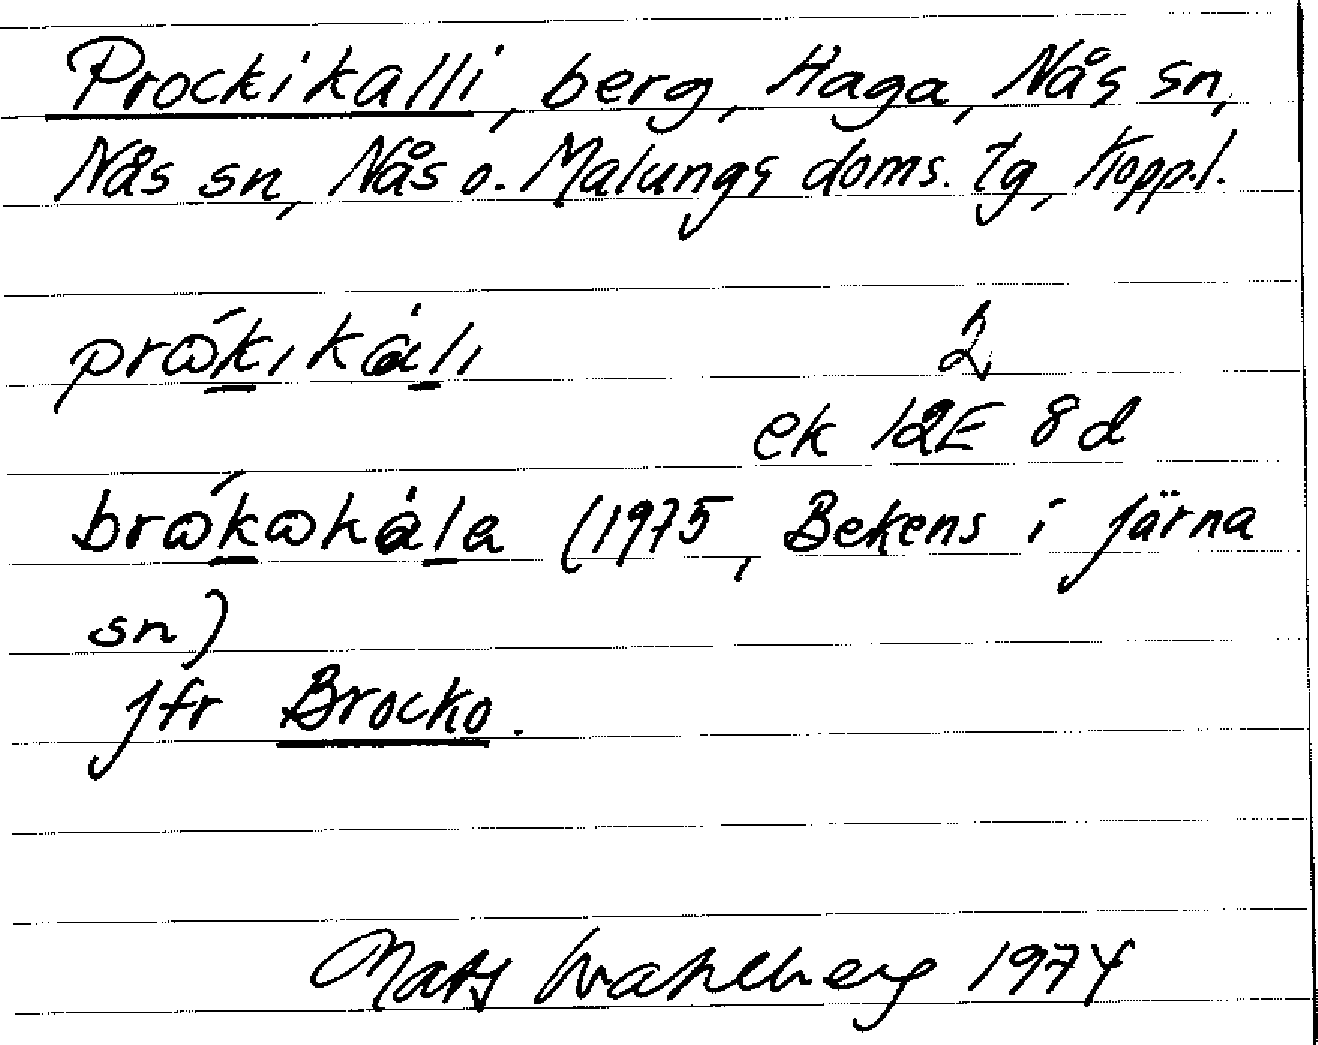 Prockikalli, berg, Haga, Nås sn,
Nås sn, Nås o. Malungs doms. tg, Kopp.l.
prɷ́kıkȧlı 2
ek 12E 8d
brɷ́kɷkȧla (1975, Bekens i Järna
sn)
jfr Brocko.
Mats Wahlberg 1974